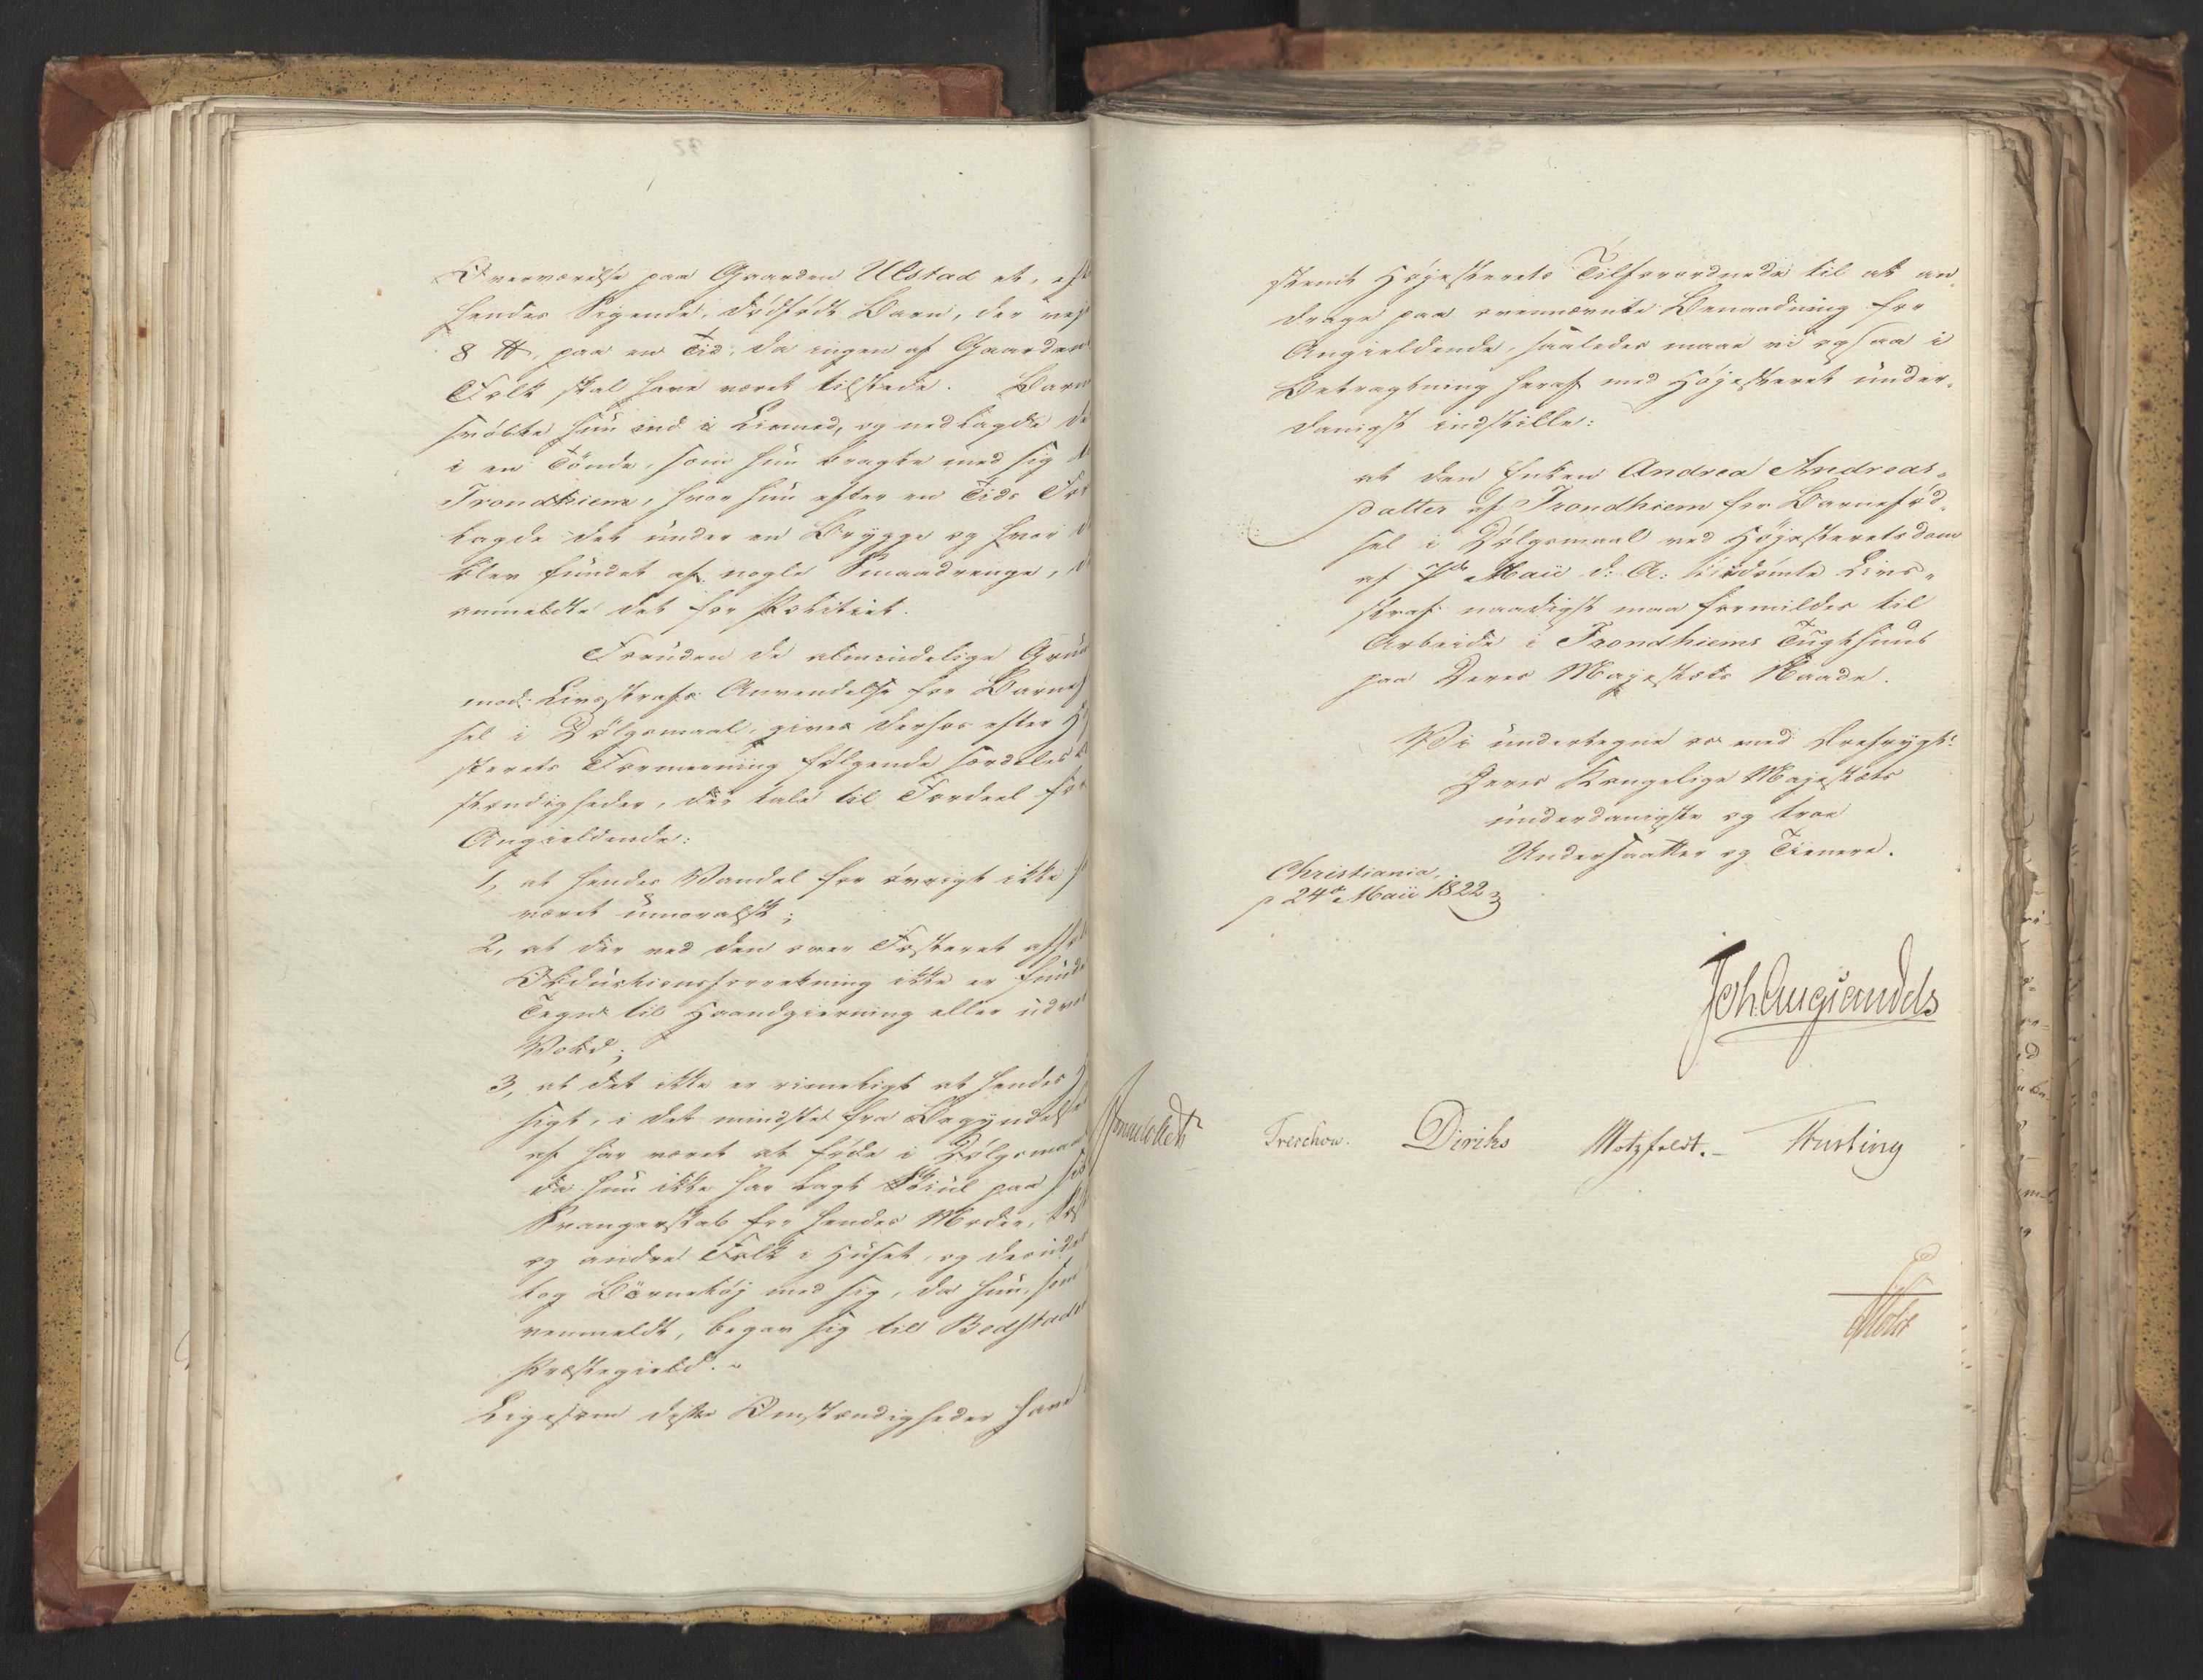 Overværelse paa Gaarden Ulstad et, eft
hendes Sigende, dødfødt Barn, der vejede
8 ℔, paa en Tid, da ingen af Gaardens
Folk skal have været tilstede. Barn
svøbte hun ind i Linned, og nedlagde de
i en Tønde, som hun bragte med sig
Trondhiem, hvor hun efter en Tids
lagde det under en Brygge og hvor
blev fundet af nogle Smaadrenge,
anmeldte det for Politiet.
Foruden de almindelige Grun
mod Livsstrafs Anvendelse for Barnef
sel i Dølgsmaal, gives derhos efter Høj
sterets Formening følgende særdeles
stændigheder, der tale til Fordeel for
Angieldende:
1, at hendes Vandel for øvrigt ikke
været umoralsk;
2, at der ved den over Fosteret
Obductionsforretning ikke er funde
Tegn til Haandgierning eller udvor
Vold;
3, at det ikke er rimeligt at hendes
sigt, i det mindste fra Begyndelse
af har været at føde i Dølgsmaal
da hun ikke har lagt Skiul paa
Svangerskab for hendes Moder,
og andre Folk i Huset, og desuden
tog Børnetøj med sig, da hun, som
ovenmeldt, begav sig til Bedstade
Præstegield.
Ligesom disse Omstændigheder have
stemt Højesterets Tilforordnede til at an-
drage paa ovennævnte Benaadning for
Angieldende, saaledes maae vi ogsaa i
Betragtning heraf med Højesteret under-
danigst indstille:
at den Enken Andrea Andreas-
datter af Trondhiem for Barnefød-
sel i Dølgsmaal ved Højesteretsdom
af 7de Maii d: A: idømte Livs-
straf naadigst maa formildes til
Arbeide i Trondhiems Tugthuus
paa Deres Majestæts Naade.
Vi undertegne os med Ærefrygt:
Deres Kongelige Majestæts
underdanigste og troe
Undersaatter og Tienere.
Christiania,
d 24de Maii 1822
Joh. Aug. Sandels
Sommerfeldt Treschow. Diriks Motzfeldt. Fasting
Holst